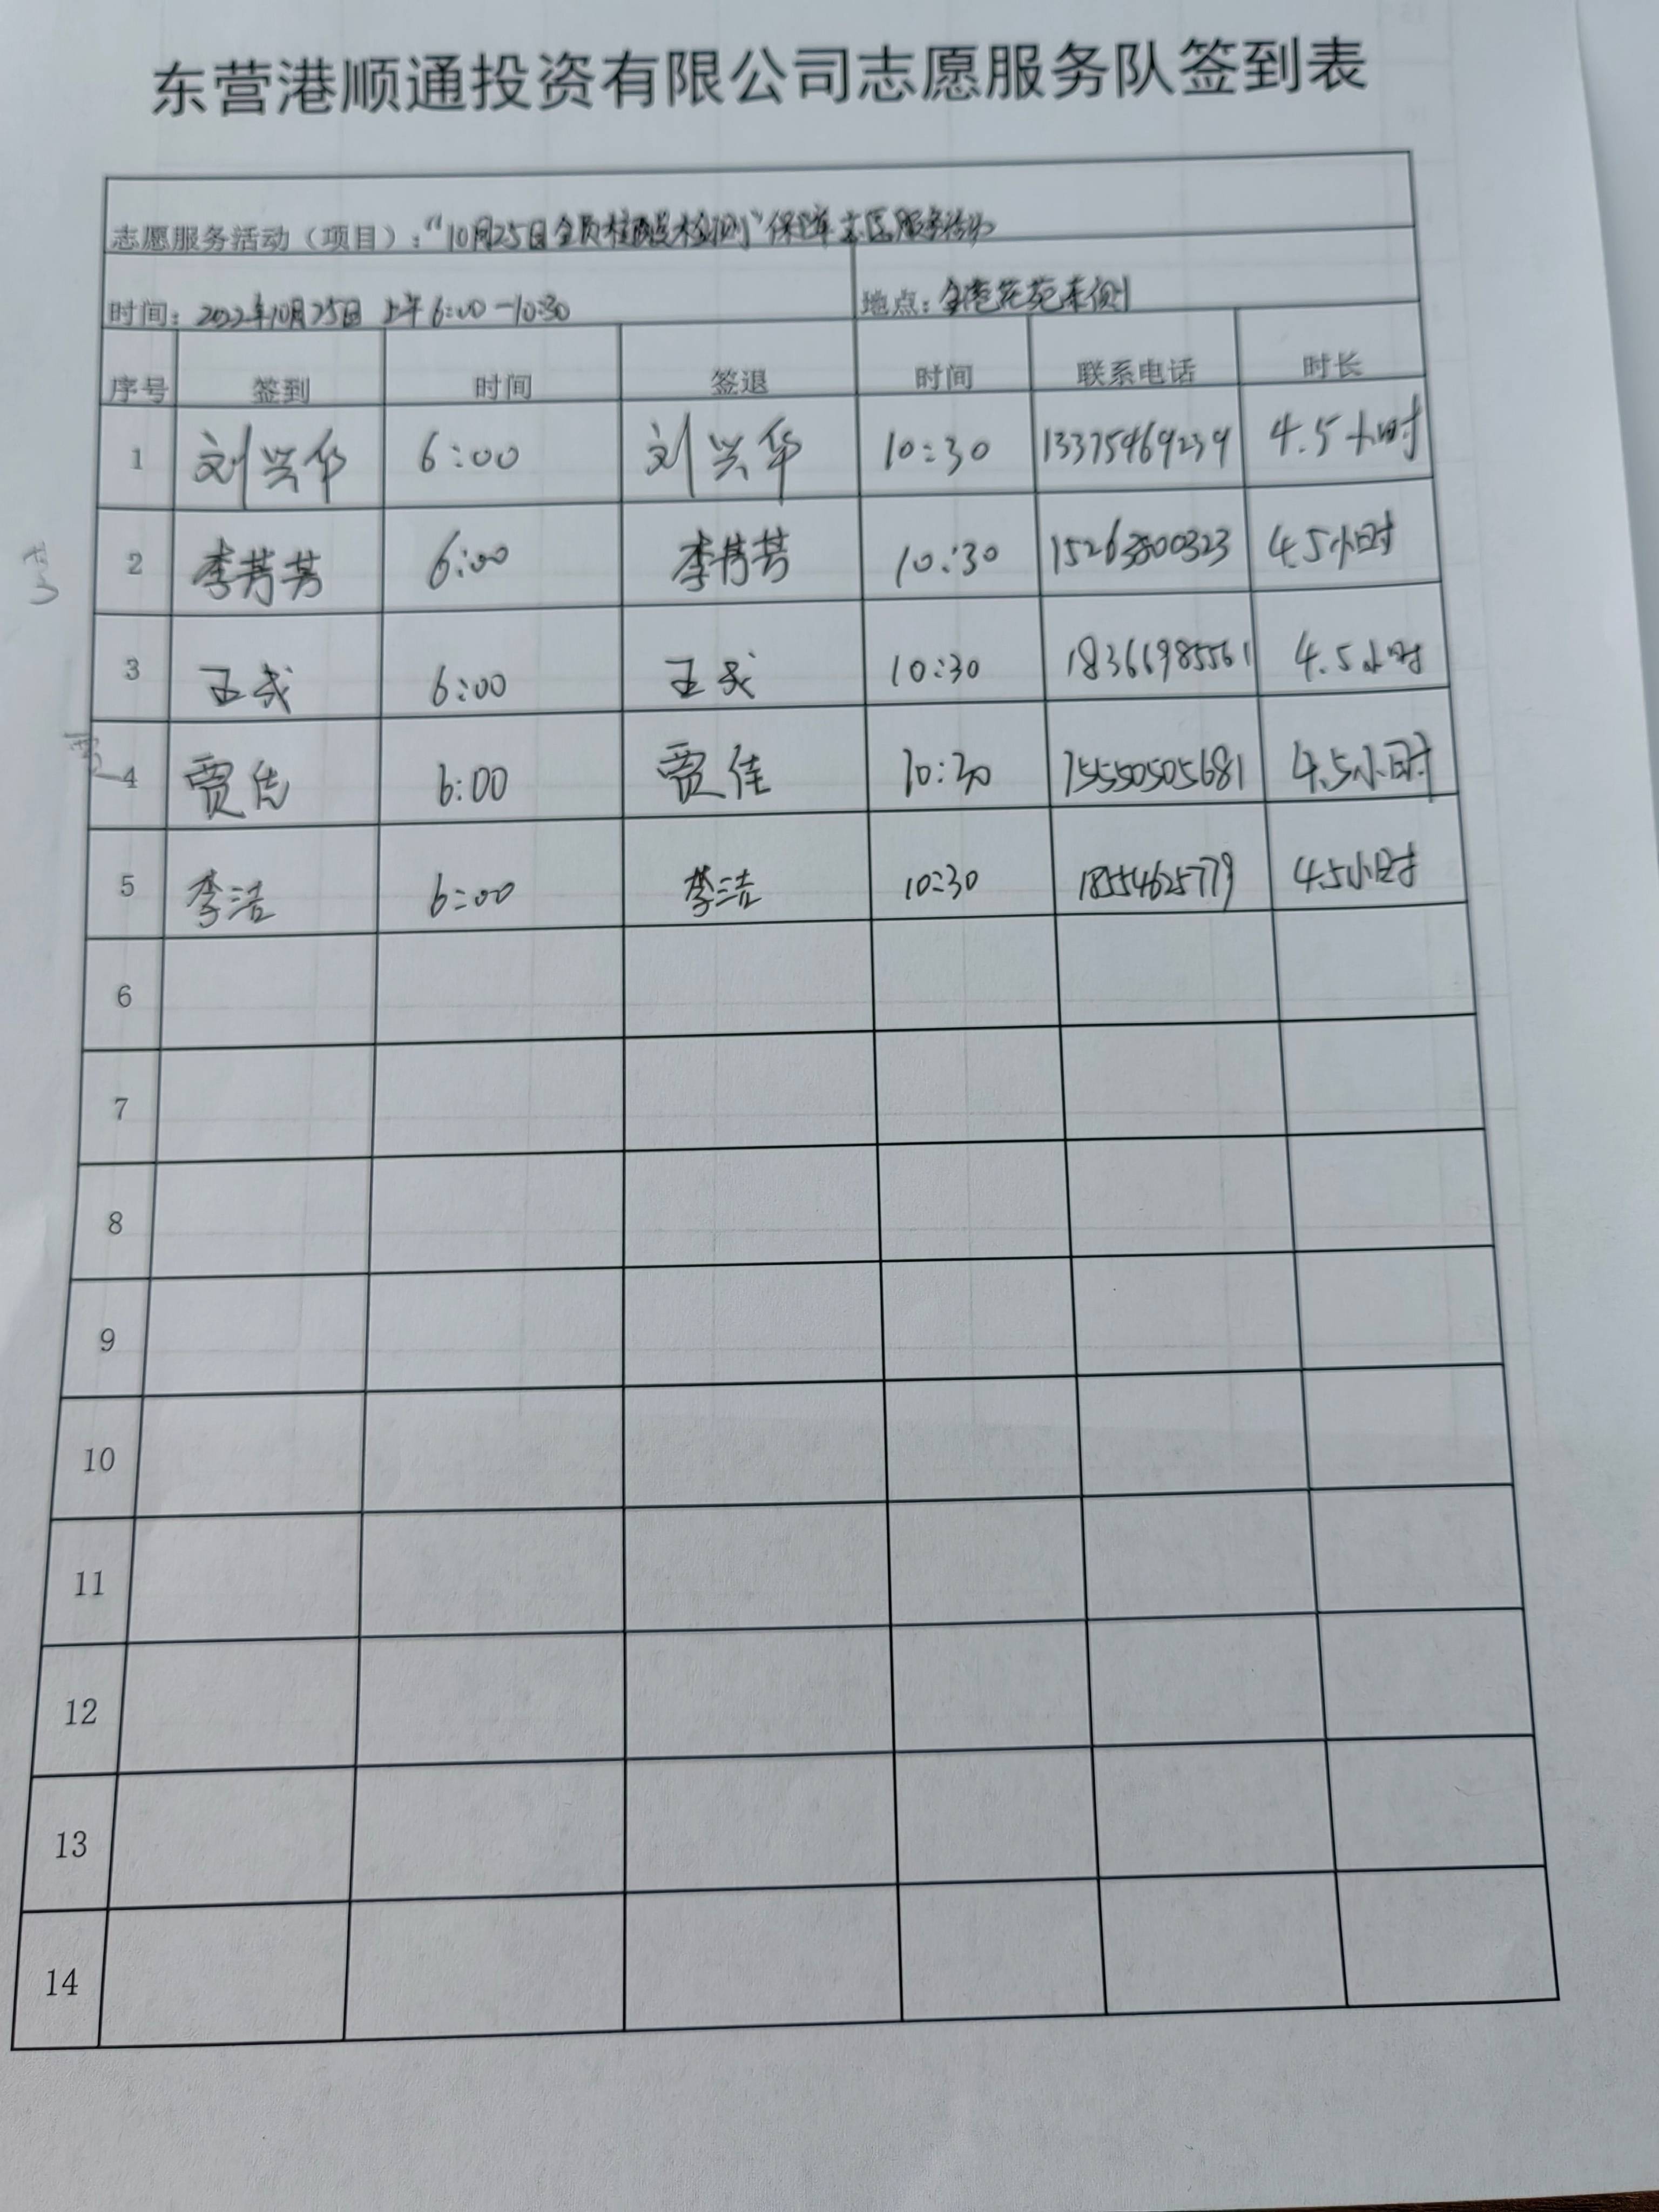 东营港顺通投资有限公司志愿服务队签到表
志愿服务活动（项目）：“10月25日全员核酸检测”保障志愿服务活动
时间：2022年10月25日 上午6:00-10:30 地点：金港花苑东侧
序号 签到 时间 签退 时间 联系电话 时长
1 刘兴华 6:00 刘兴华 10:30 13375469239 4.5小时
2 李芳芳 6:00 李芳芳 10:30 4.5小时
3 6:00 10:30 18366985561 4.5小时
4 贾佳 6:00 贾佳 10:30 15550505681 4.5小时
5 李洁 6:00 李洁 10:30 18554625779 4.5小时
6
7
8
9
10
11
12
13
14